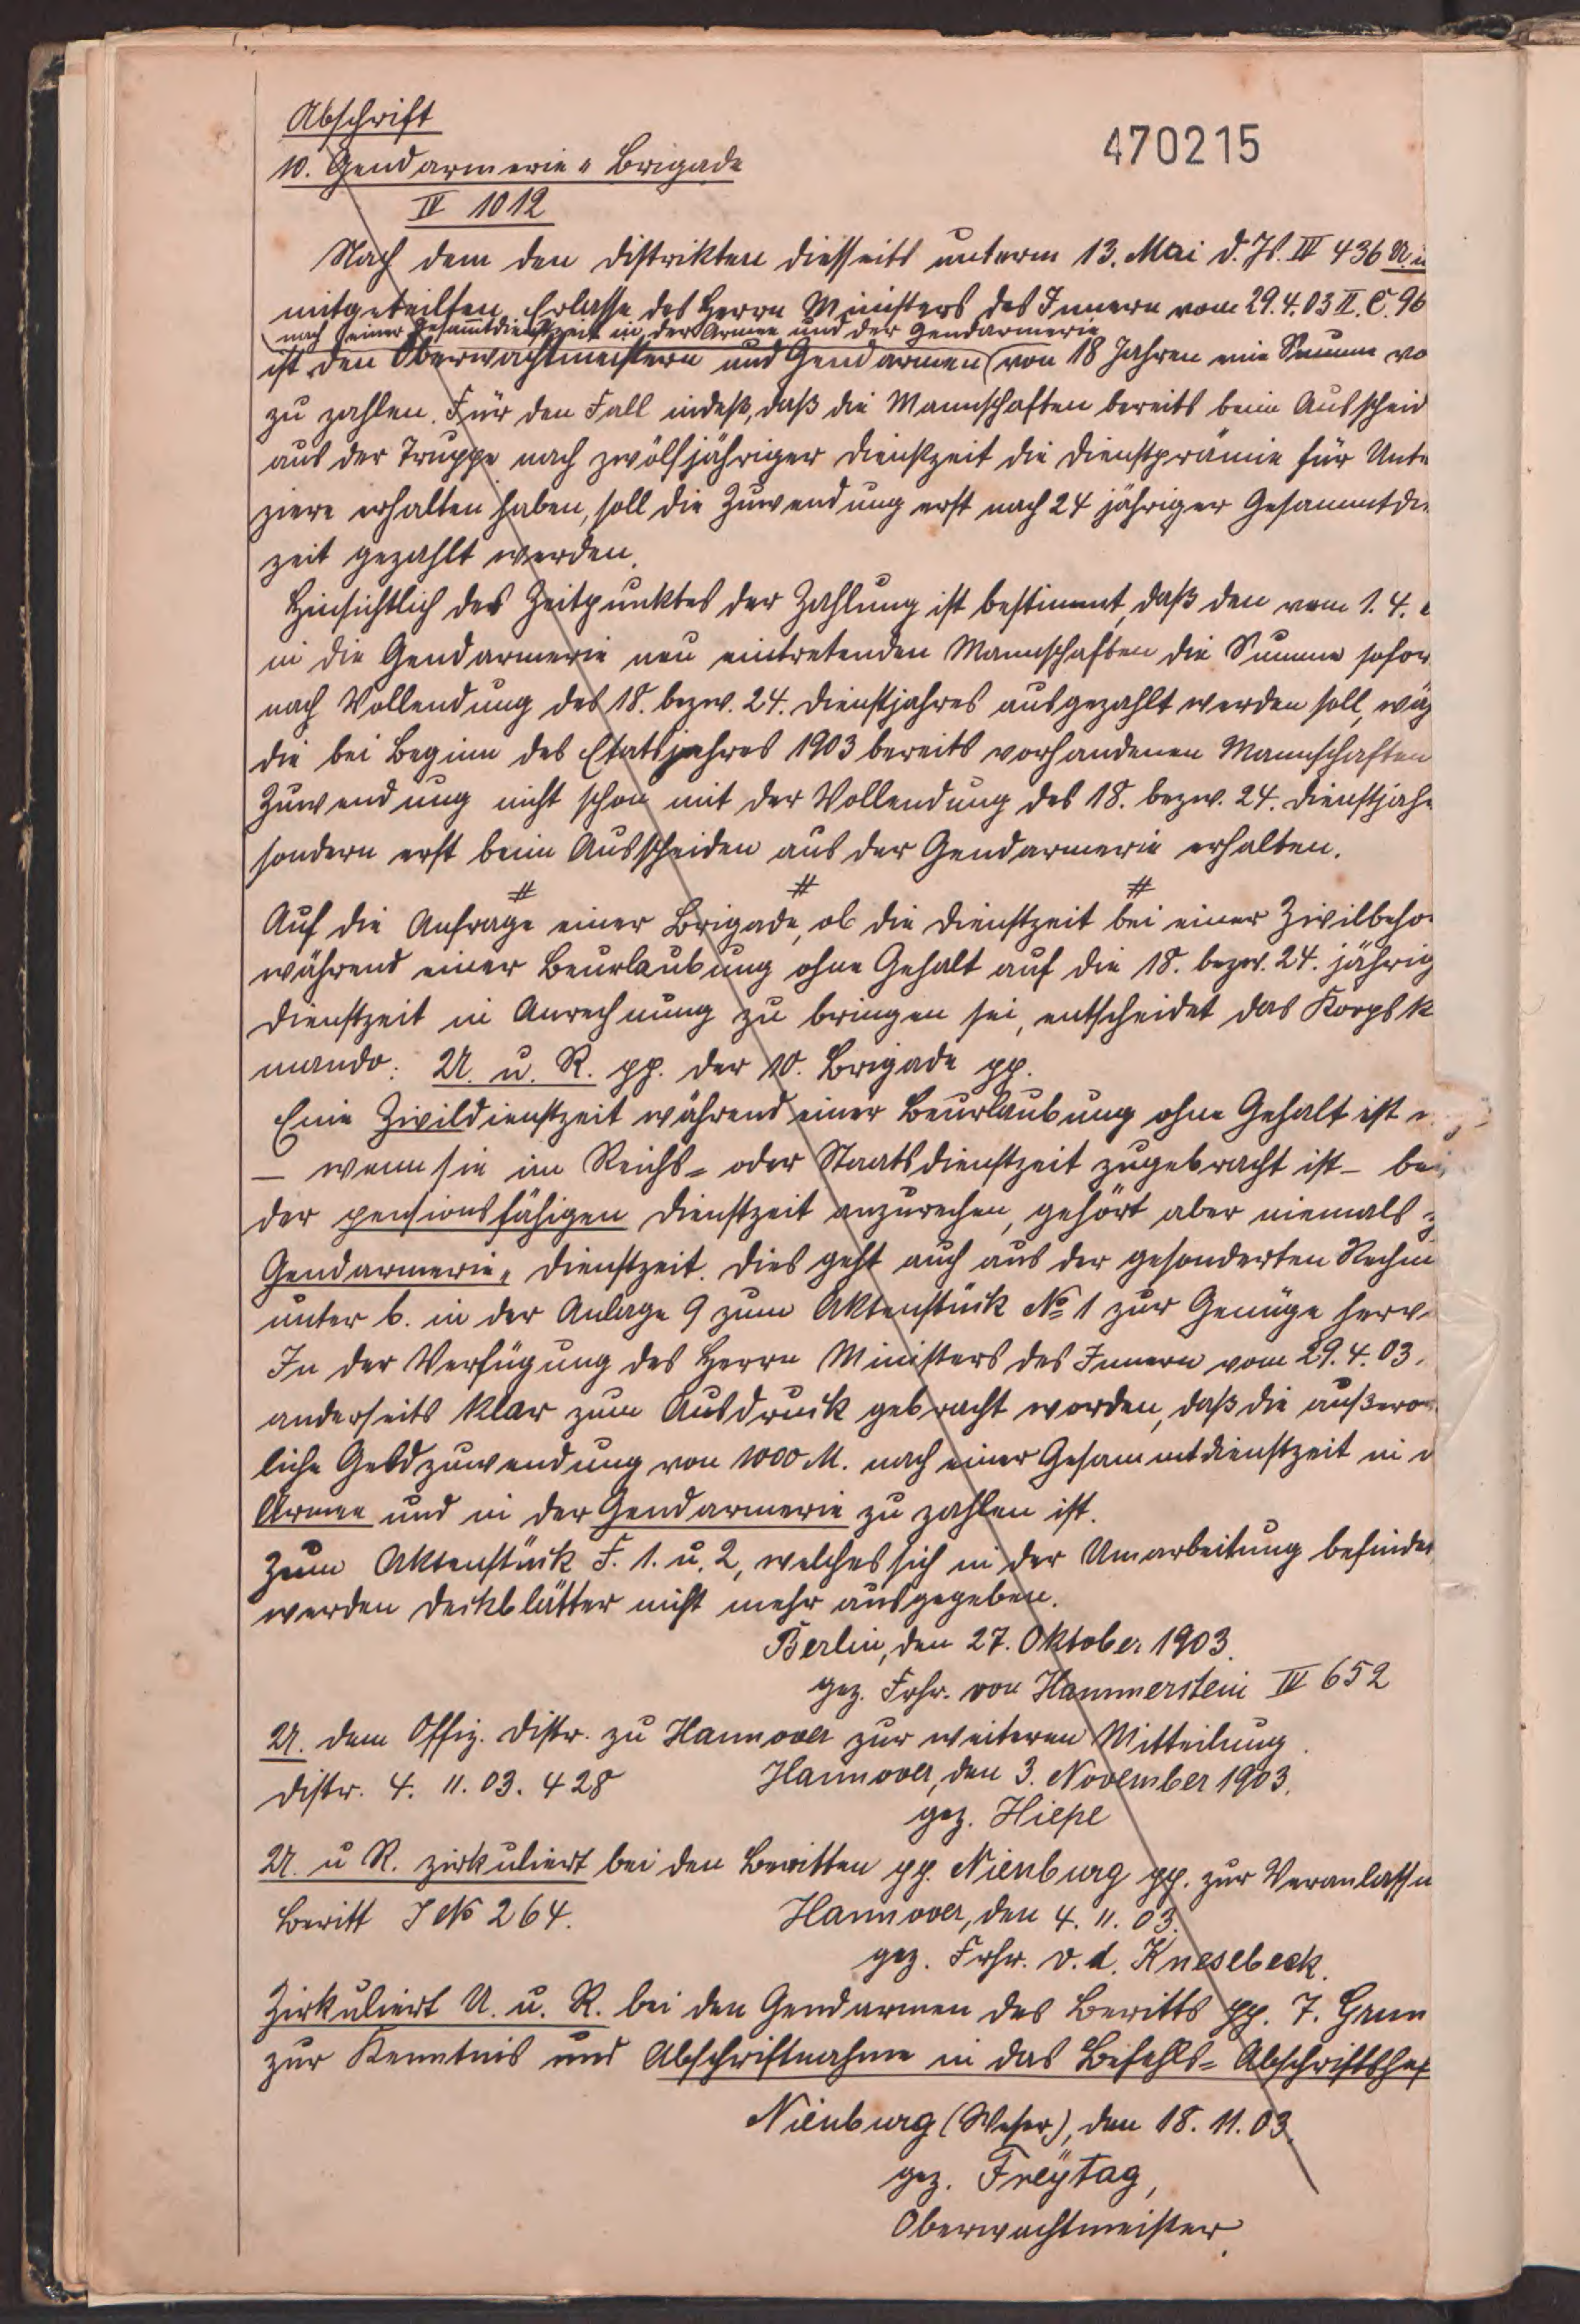 Abschrift
470215
10. Gendarmerie-Brigade
IV 1012
Nach dem den Distrikten diesseits unterm 13. Mai d. Js. III 436 U. u
mitgeteilten Erlasse des Herrn Ministers des Innern vom 29.4.03 II. C. 96
nach einer Gesamtdienstzeit in der Armee und der Gendarmerie
ist den Oberwachtmeistern und Gendarmen von 18 Jahren eine Summe vo
zu zahlen. Für den Fall indeß, daß die Mannschaften bereits beim Ausscheid
aus der Truppe nach zwölfjähriger Dienstzeit die Dienstprämie für Unte
ziere erhalten haben, soll die Zuwendung erst nach 24 jähriger Gesammtdie
zeit gezahlt werden.
Hinsichtlich des Zeitpunktes der Zahlung ist bestimmt, daß den vom 1. 4.
in die Gendarmerie neu eintretenden Mannschaften die Summe sofor
nach Vollendung des 18. bezw. 24. Dienstjahres ausgezahlt werden soll, wäh
die bei Beginn des Etatsjahres 1903 bereits vorhandenen Mannschaften
Zuwendung nicht schon mit der Vollendung des 18. bezw. 24. Dienstjahr
sondern erst beim Ausscheiden aus der Gendarmerie erhalten.
# # #
Auf die Anfrage einer Brigade, ob die Dienstzeit bei einer Zivilbehö
während einer Beurlaubung ohne Gehalt auf die 18. bezw. 24. jährig
Dienstzeit in Anrechnung zu bringen sei, entscheidet das Korpsk
mando: U. u. R. pp. der 10. Brigade pp.
Eine Zivildienstzeit während einer Beurlaubung ohne Gehalt ist
– wenn sie im Reichs- oder Staatsdienstzeit zugebracht ist – bei
der pensionsfähigen Dienstzeit anzurechen, gehört aber niemals z
Gendarmerie-Dienstzeit. Dies geht auch aus der gesonderten Rechn
unter b. in der Anlage 9 zum Aktenstück No 1 zur Genüge herv
In der Verfügung des Herrn Ministers des Innern vom 29.4.03.
anderseits klar zum Ausdruck gebracht worden, daß die außeror
liche Geldzuwendung von 1000 M. nach einer Gesammtdienstzeit in d
Armee und in der Gendarmerie zu zahlen ist.
Zum Aktenstück F. 1. u. 2, welches sich in der Umarbeitung befindet
werden Deckblätter nicht mehr ausgegeben.
Berlin, den 27. Oktober 1903.
gez. Frhr. von Hammerstein III 652
U. dem Offiz. Distr. zu Hannover zur weiteren Mitteilung.
Distr. 4. 11. 03. 428 Hannover, den 3. November 1903.
gez. Hiepe
U. u R. zirkuliert bei den Beritten pp. Nienburg pp. zur Veranlassu
Beritt J No 264. Hannover, den 4. 11. 03.
gez. Frhr. v. d. Knesebeck.
Zirkuliert U. u. R. bei den Gendarmen des Beritts pp. 7.
zur Kenntnis und Abschriftnahme in das Befehls-Abschriftshef
Nienburg (Weser), den 18. 11. 03.
gez. Freÿtag,
Oberwachtmeister.